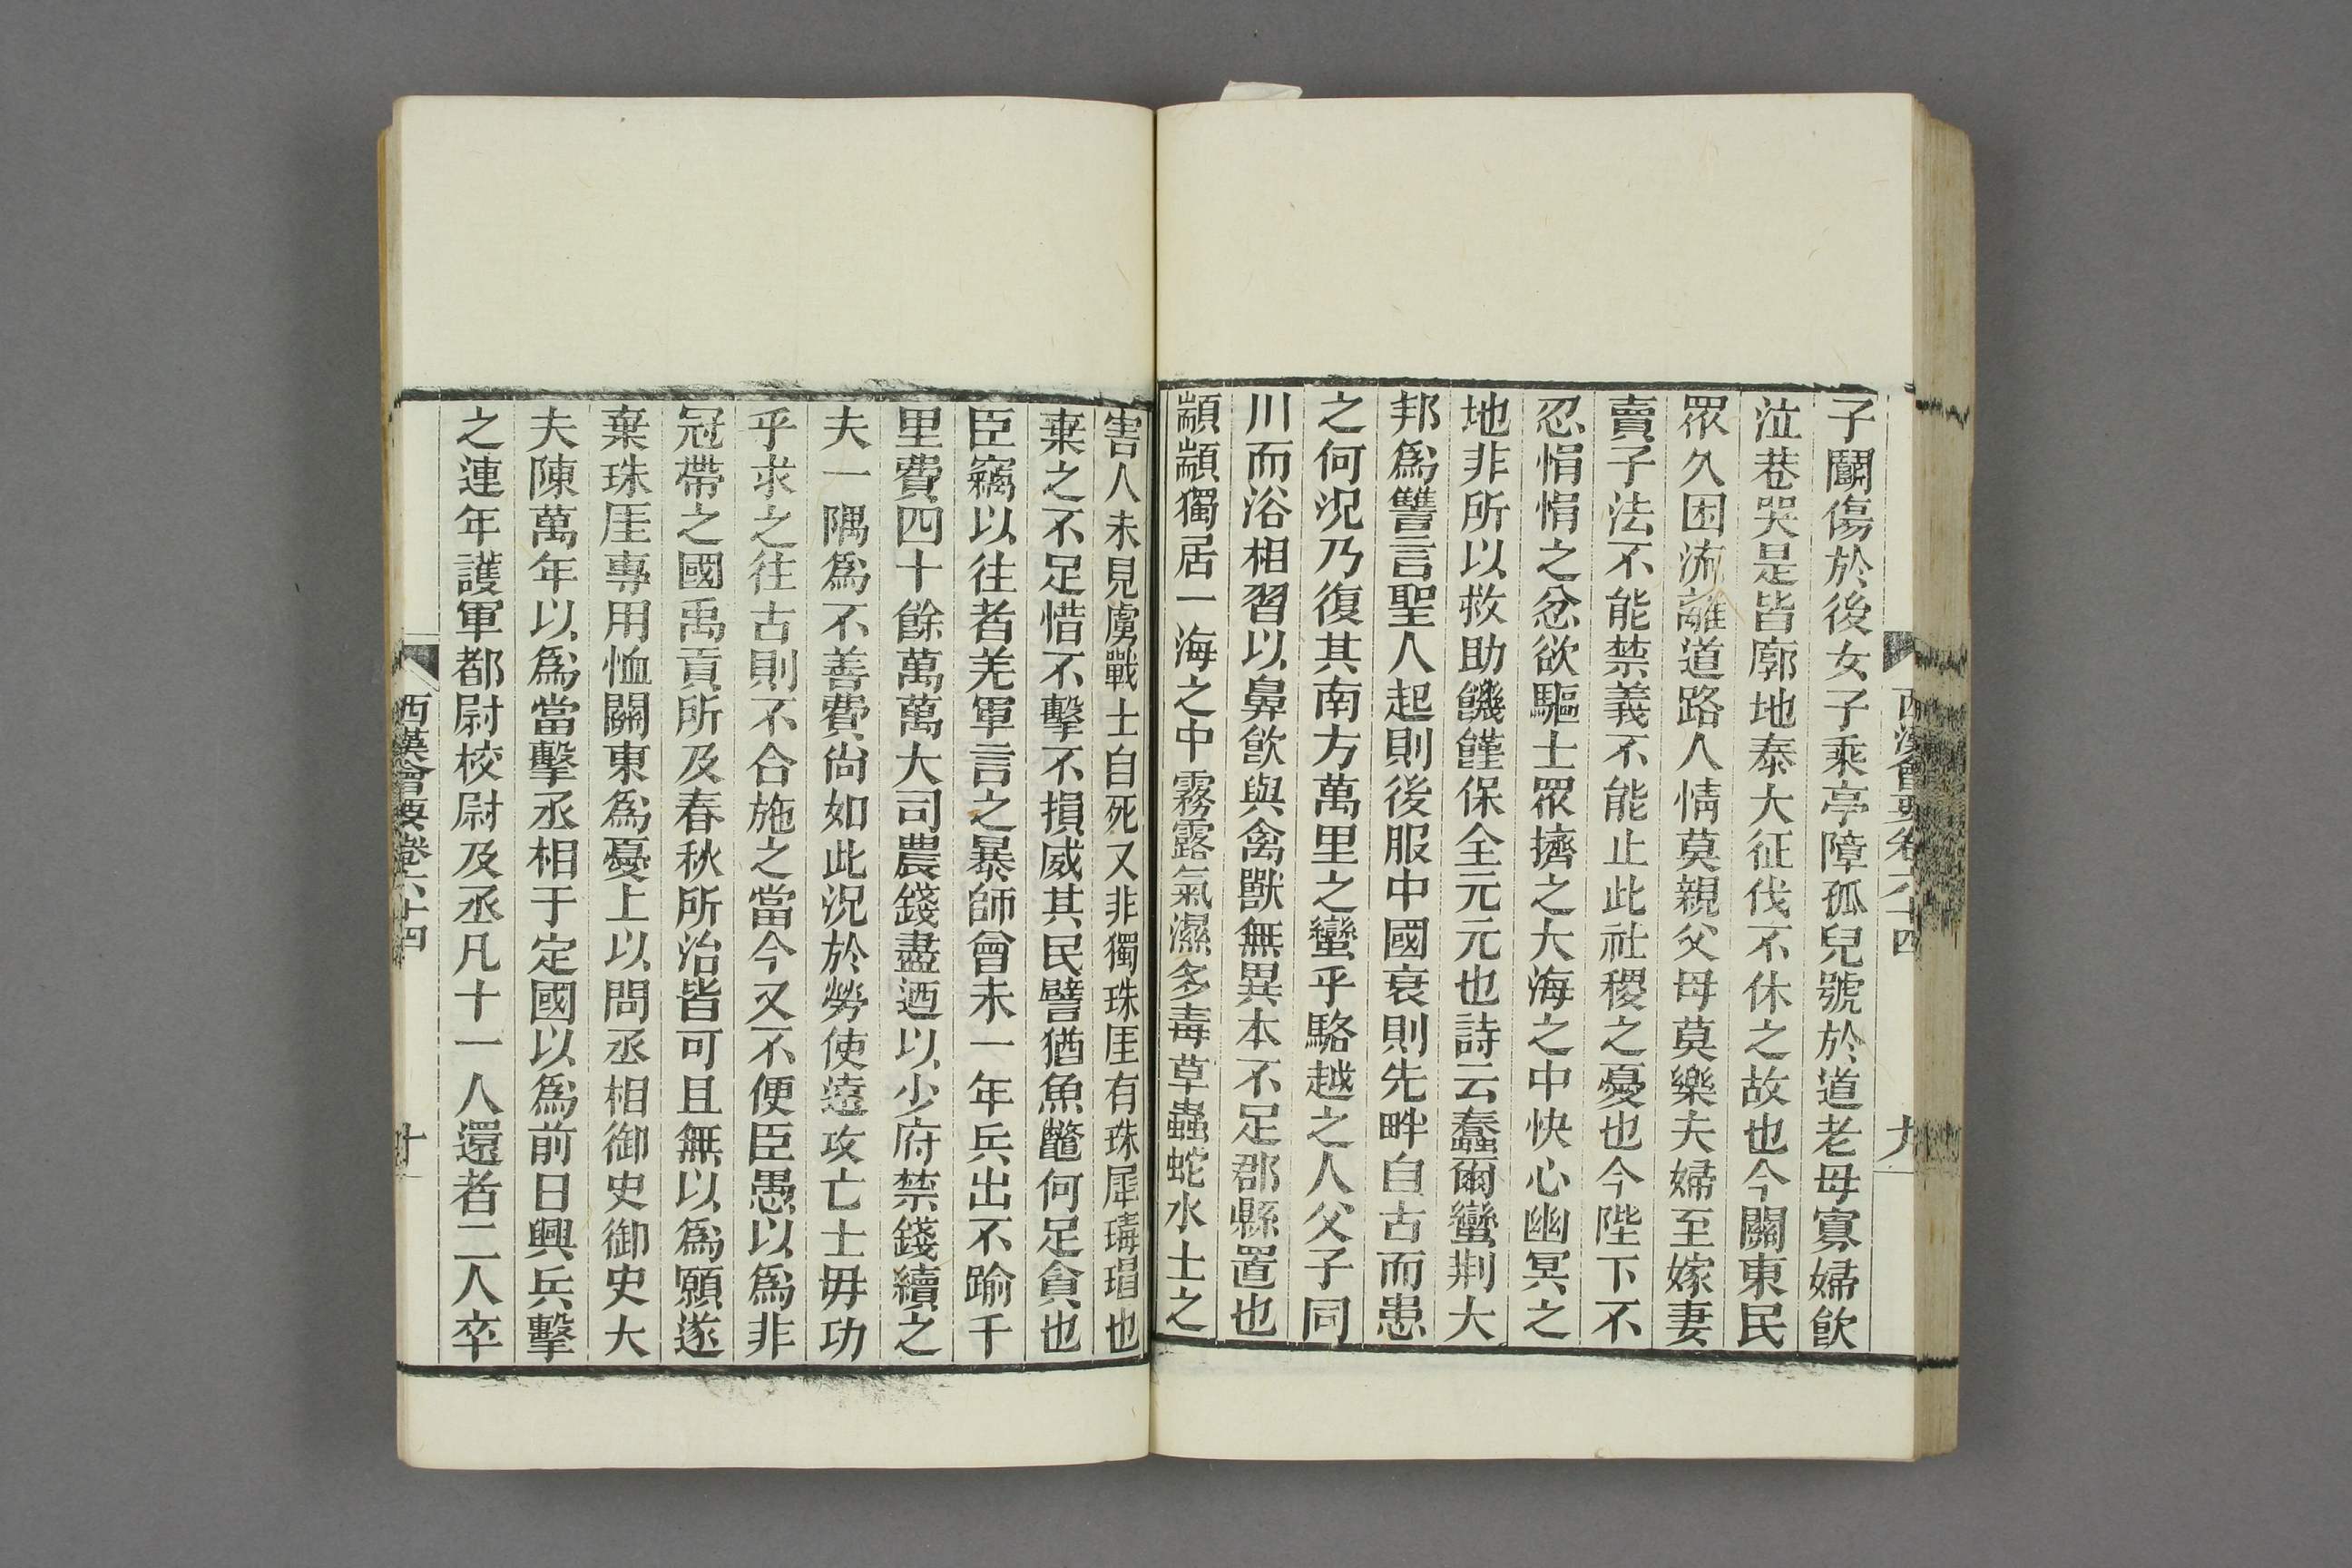 西漢會要卷六十四 九
子鬭傷於後女子乘亭障孤兒號於道老母寡婦飮
泣巷哭是皆廓地泰大征伐不休之故也今關東民
眾久困流離道路人情莫親父母莫樂夫婦至嫁妻
賣子法不能禁義不能止此社稷之憂也今陛下不
忍悁悁之忿欲驅士眾擠之大海之中快心幽冥之
地非所以救助饑饉保全元元也詩云蠢爾蠻荆大
邦爲讐言聖人起則後服中國衰則先畔自古而患
之何況乃復其南方萬里之蠻乎駱越之人父子同
川而浴相習以鼻飮與禽獸無異本不足郡縣置也
顓顓獨居一海之中霧露氣濕多毒草蟲蛇水土之
害人未見虜戰士自死又非獨珠厓有珠犀瑇瑁也
棄之不足惜不擊不損威其民譬猶魚鼈何足貪也
臣竊以往者羌軍言之暴師曾未一年兵出不踰千
里費四十餘萬萬大司農錢盡迺以少府禁錢續之
夫一隅爲不善費尙如此況於勞使遠攻亡士毋功
乎求之往古則不合施之當今又不便臣愚以爲非
冠帶之國禹貢所及春秋所治皆可且無以爲願遂
棄珠厓專用恤關東爲憂上以問丞相御史御史大
夫陳萬年以爲當擊丞相于定國以爲前日興兵擊
之連年護軍都尉校尉及丞凡十一人還者二人卒
西漢會要卷六十四 十